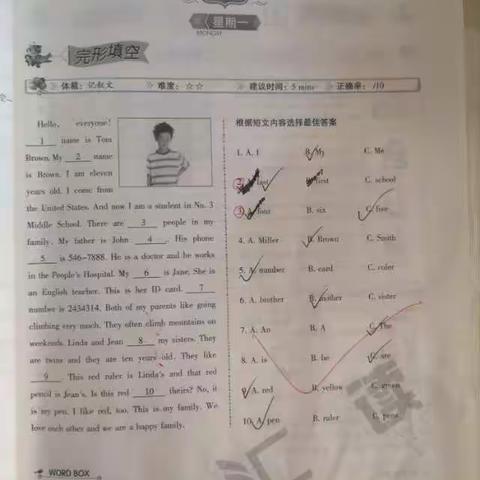 星期一
MONDAY
完形填空
体裁：记叙文 难度：☆☆ 建议时间：5 mins 正确率： /10
Hello, everyone!
1 name is Tom
Brown. My 2 name
is Brown. I am eleven
years old. I come from
the United States. And now I am a student in No. 3
Middle School. There are 3 people in my
family. My father is John 4 . His phone
5 is 546-7888. He is a doctor and he works
in the People's Hospital. My 6 is Jane. She is
an English teacher. This is her ID card. 7
number is 2434314. Both of my parents like going
climbing very much. They often climb mountains on
weekends. Linda and Jean 8 my sisters. They
are twins and they are ten years old. They like
9 . This red ruler is Linda's and that red
pencil is Jean's. Is this red 10 theirs? No, it
is my pen. I like red, too. This is my family. We
love each other and we are a happy family.
根据短文内容选择最佳答案
1. A. I B. My C. Me
2. A. last B. first C. school
3. A. four B. six C. five
4. A. Miller B. Brown C. Smith
5. A. number B. card C. ruler
6. A. brother B. mother C. sister
7. A. An B. A C. The
8. A. is B. be C. are
9. A. red B. yellow C. green
10. A. pen B. ruler C. pens
WORD BOX